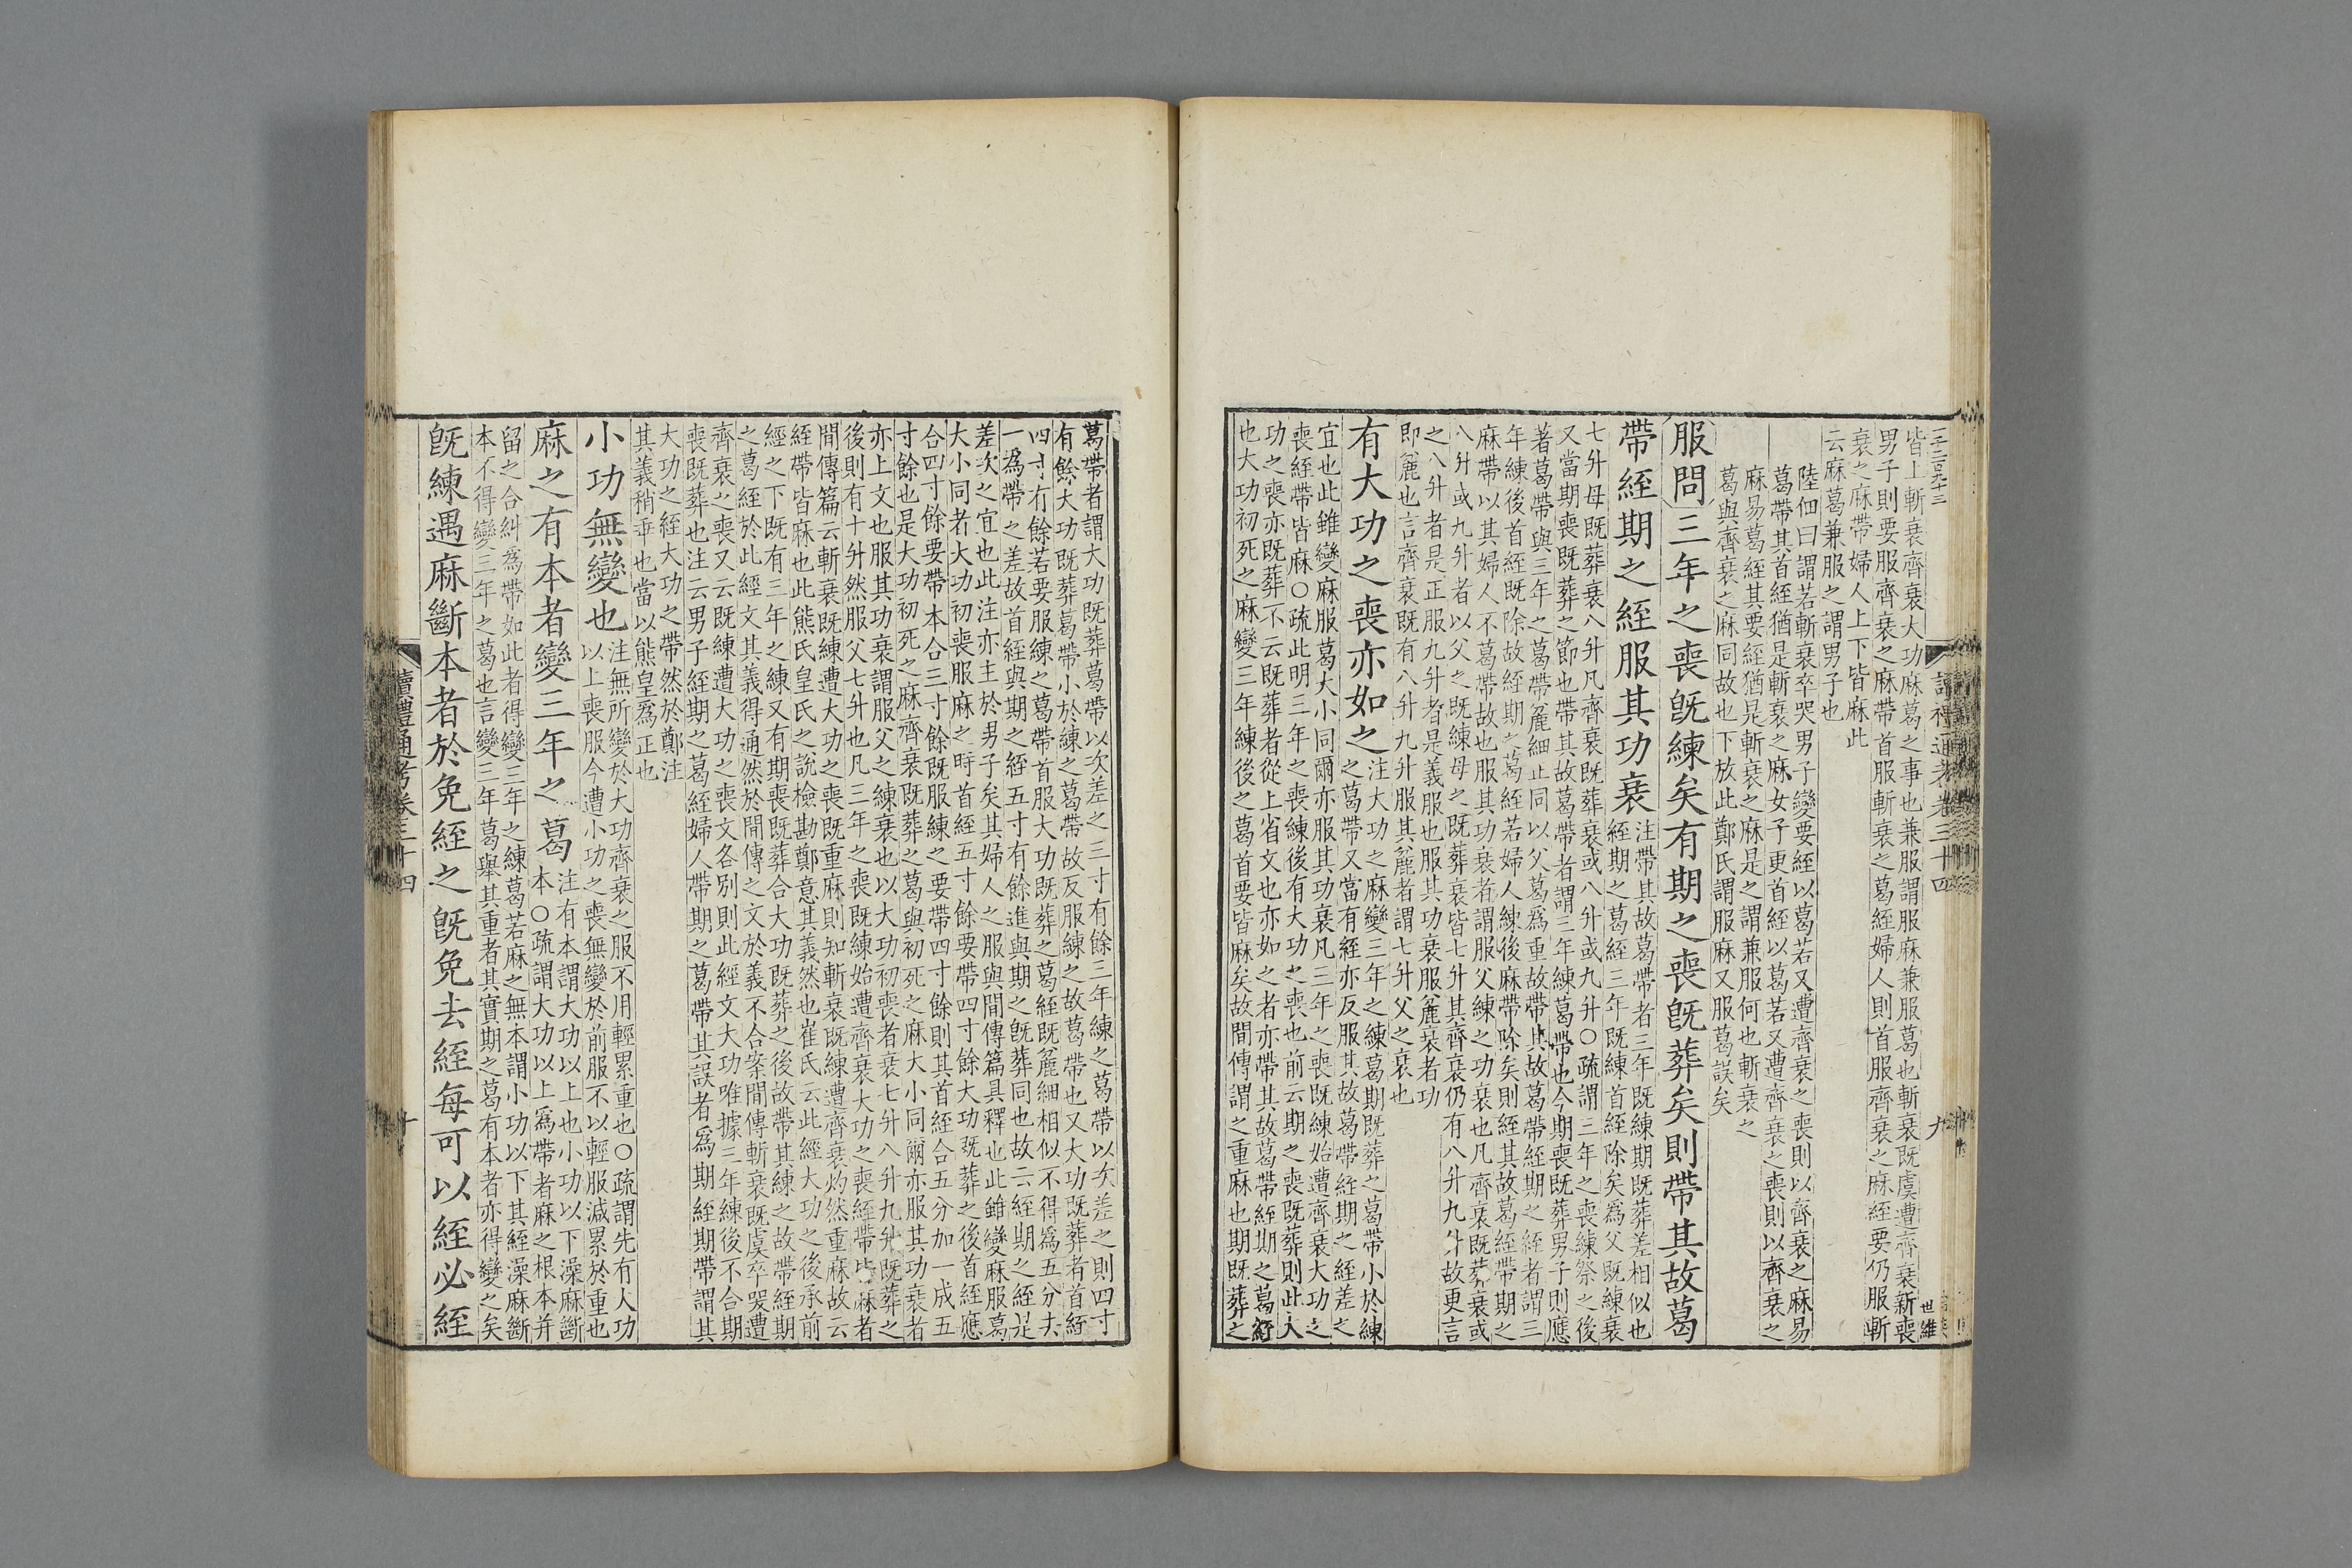 皆上斬衰齊衰大功麻葛之事也兼服謂服麻兼服葛也斬衰既虞遭齊衰新喪
男子則要服齊衰之麻帶首服斬衰之葛絰婦人則首服齊衰之麻絰要仍服斬
衰之麻帶婦人上下皆麻此
云麻葛兼服之謂男子也
陸佃曰謂若斬衰卒哭男子變要絰以葛若又遭齊衰之喪則以齊衰之麻易
葛帶其首絰猶是斬衰之麻女子更首絰以葛若又遭齊衰之喪則以齊衰之
麻易葛絰其要絰猶是斬衰之麻是之謂兼服何也斬衰之
葛與齊衰之麻同故也下放此鄭氏謂服麻又服葛誤矣
服問三年之喪既練矣有期之喪既葬矣則帶其故葛
帶絰期之絰服其功衰
注帶其故葛帶者三年既練期既葬差相似也
絰期之葛絰三年既練首絰除矣為父既練衰
七升母既葬衰八升凡齊衰既葬衰或八升或九升○疏謂三年之喪練祭之後
又當期喪既葬之節也帶其故葛帶者謂三年練葛帶也今期喪既葬男子則應
著葛帶與三年之葛帶麄細正同以父葛為重故帶其故葛帶絰期之絰者謂三
年練後首絰既除故絰期之葛絰若婦人練後麻帶除矣則絰其故葛絰帶期之
麻帶以其婦人不葛帶故也服其功衰者謂服父練之功衰也凡齊衰既葬衰或
八升或九升者以父之既練母之既葬衰皆七升其齊衰仍有八升九升故更言
之八升者是正服九升者是義服也服其功衰服麄衰者功
即麄也言齊衰既有八升九升服其麄者謂七升父之衰也
有大功之喪亦如之
注大功之麻變三年之練葛期既葬之葛帶小於練
之葛帶又當有絰亦反服其故葛帶絰期之絰差之
宜也此雖變麻服葛大小同爾亦服其功衰凡三年之喪既練始遭齊衰大功之
喪絰帶皆麻○疏此明三年之喪練後有大功之喪也前云期之喪既葬則此大
功之喪亦既葬不云既葬者從上省文也亦如之者亦帶其故葛帶絰期之葛絰
也大功初死之麻變三年練後之葛首要皆麻矣故間傳謂之重麻也期既葬之
葛帶者謂大功既葬葛帶以次差之三寸有餘三年練之葛帶以次差之則四寸
有餘大功既葬葛帶小於練之葛帶故反服練之故葛帶也又大功既葬者首絰
四寸有餘若要服練之葛帶首服大功既葬之葛絰既麄細相似不得為五分去
一為帶之差故首絰與期之絰五寸有餘進與期之既葬同也故云絰期之絰是
差次之宜也此注亦主於男子矣其婦人之服與間傳篇具釋也此雖變麻服葛
大小同者大功初喪服麻之時首絰五寸餘要帶四寸餘大功既葬之後首絰應
合四寸餘要帶本合三寸餘既服練之要帶四寸餘則其首絰合五分加一成五
寸餘也是大功初死之麻齊衰既葬之葛與初死之麻大小同爾亦服其功衰者
亦上文也服其功衰謂服父之練衰也以大功初喪者衰七升八升九升既葬之
後則有十升然服父七升也凡三年之喪既練始遭齊衰大功之喪絰帶皆麻者
間傳篇云斬衰既練遭大功之喪既重麻則知斬衰既練遭齊衰灼然重麻故云
絰帶皆麻也此熊氏皇氏之說檢勘鄭意其義然也崔氏云此經大功之後承前
經之下既有三年之練又有期喪既葬合大功既葬之後故帶其練之故帶絰期
之葛絰於此經文其義得通然於間傳之文於義不合案間傳斬衰既虞卒哭遭
齊衰之喪又云既練遭大功之喪文各別則此經文大功唯據三年練後不合期
喪既葬也注云男子絰期之葛絰婦人帶期之葛帶其誤者為期絰期帶謂其
大功之絰大功之帶然於鄭注
其義稍乖也當以熊皇為正也
小功無變也
注無所變於大功齊衰之服不用輕累重也○疏謂先有大功
以上喪服今遭小功之喪無變於前服不以輕服減累於重也
麻之有本者變三年之葛
注有本謂大功以上也小功以下澡麻斷
本○疏謂大功以上為帶者麻之根本并
留之合糾為帶如此者得變三年之練葛若麻之無本謂小功以下其絰澡麻斷
本不得變三年之葛也言變三年葛舉其重者其實期之葛有本者亦得變之矣
既練遇麻斷本者於免絰之既免去絰每可以絰必絰
讀禮通考卷三十四
十